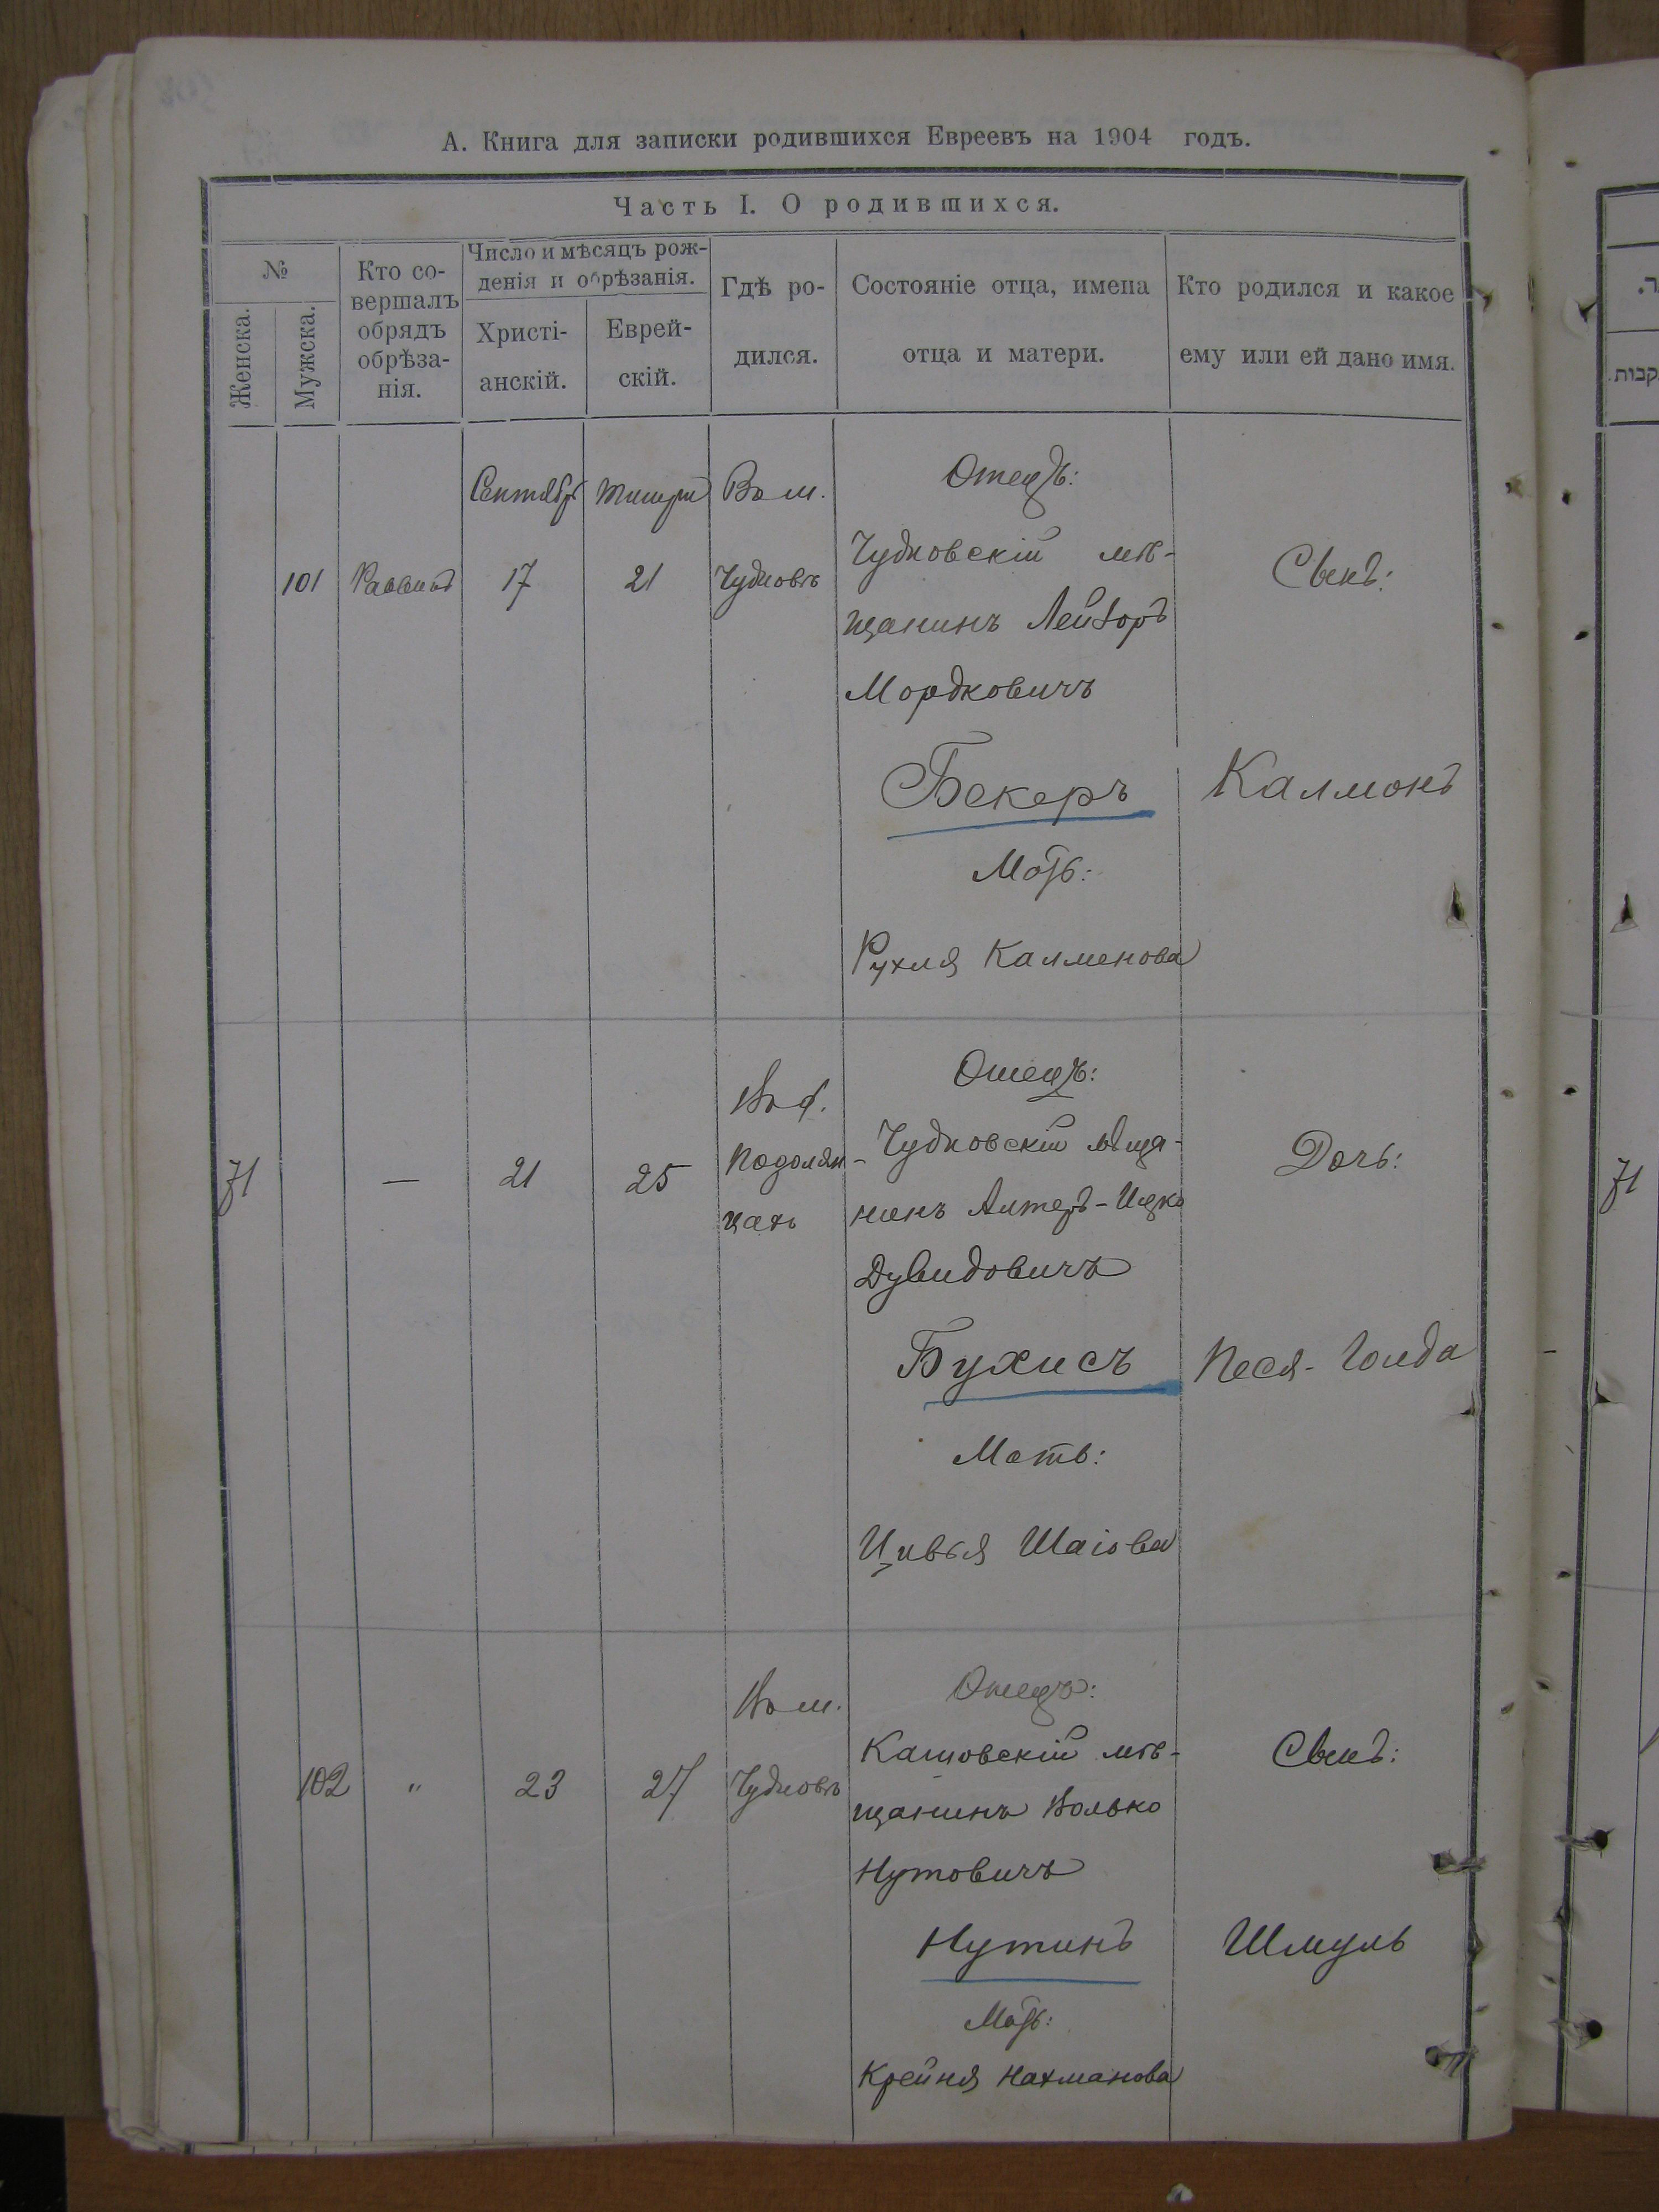 А. Книга для записки родившихся Евреевъ на 1904 годъ.
Часть I. О родившихся.
№
Женска.
Мужска.
Кто со-
вершалъ
обрядъ
обрѣза-
нія.
Число и мѣсяцъ рож-
денія и обрѣзанія.
Христі-
анскій.
Еврей-
скій.
Гдѣ ро-
дился.
Состояніе отца, имена
отца и матери.
Кто родился и какое
ему или ей дано имя.
101
Раввинъ
Сентябрь
17
Тишри
21
Въ м.
Чудновѣ
Отецъ:
Чудновскій мѣ-
щанинъ Лейзоръ
Мордковичъ
Бекеръ
Мать:
Рухля Калменова
Сынъ:
Калмонъ
71
—
21
25
Въ с.
Подолян-
цахъ
Отецъ:
Чудновскій мѣща-
нинъ Алтеръ-Ицко
Дувидовичъ
Бухисъ
Мать:
Цивья Шаіова
Дочь:
Песя-Голда
102
"
23
27
Въ м.
Чудновѣ
Отецъ:
Катовскій мѣ-
щанинъ Волько
Нутовичъ
Нутинъ
Мать:
Крейня Нахманова
Сынъ:
Шмуль
קבות.
71